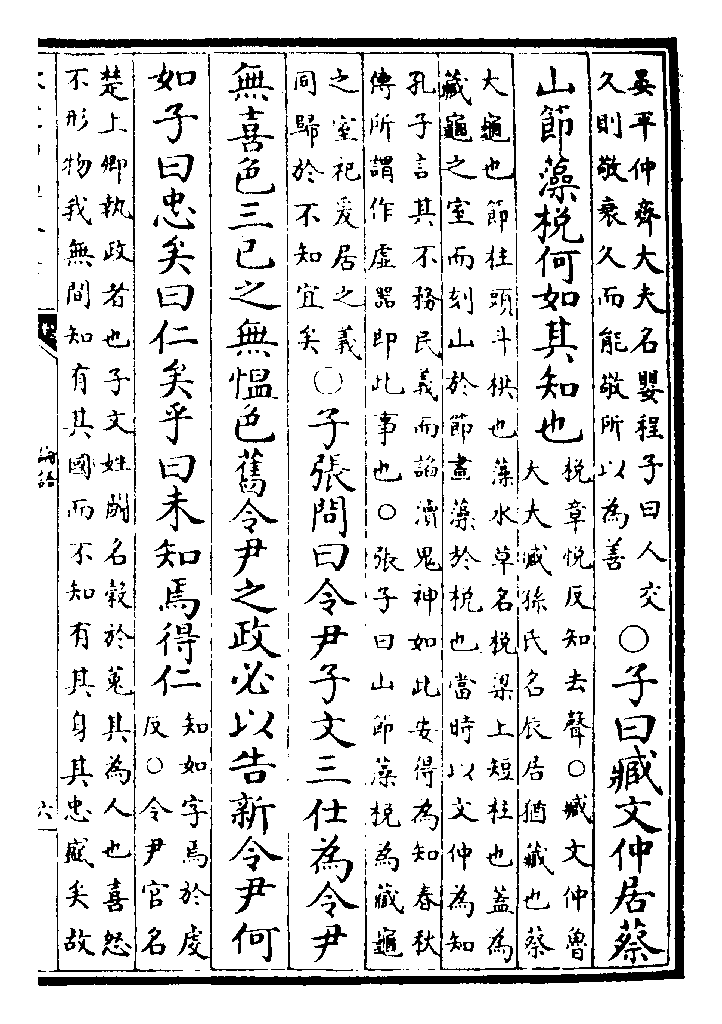 晏平仲齊大夫名嬰程子曰人交
久則敬衰久而能敬所以為善
○子曰臧文仲居蔡
山節藻梲何如其知也
梲章悅反知去聲○臧文仲魯
大夫臧孫氏名辰居猶藏也蔡
大龜也節柱頭斗栱也藻水草名梲梁上短柱也蓋為
藏龜之室而刻山於節畫藻於梲也當時以文仲為知
孔子言其不務民義而諂瀆鬼神如此安得為知春秋
傳所謂作虛器即此事也○張子曰山節藻梲為藏龜
之室祀爰居之義
同歸於不知宜矣
○子張問曰令尹子文三仕為令尹
無喜色三已之無慍色舊令尹之政必以告新令尹何
如子曰忠矣曰仁矣乎曰未知焉得仁
知如字焉於虔
反○令尹官名
楚上卿執政者也子文姓鬭名穀於菟其為人也喜怒
不形物我無間知有其國而不知有其身其忠盛矣故
論語
六